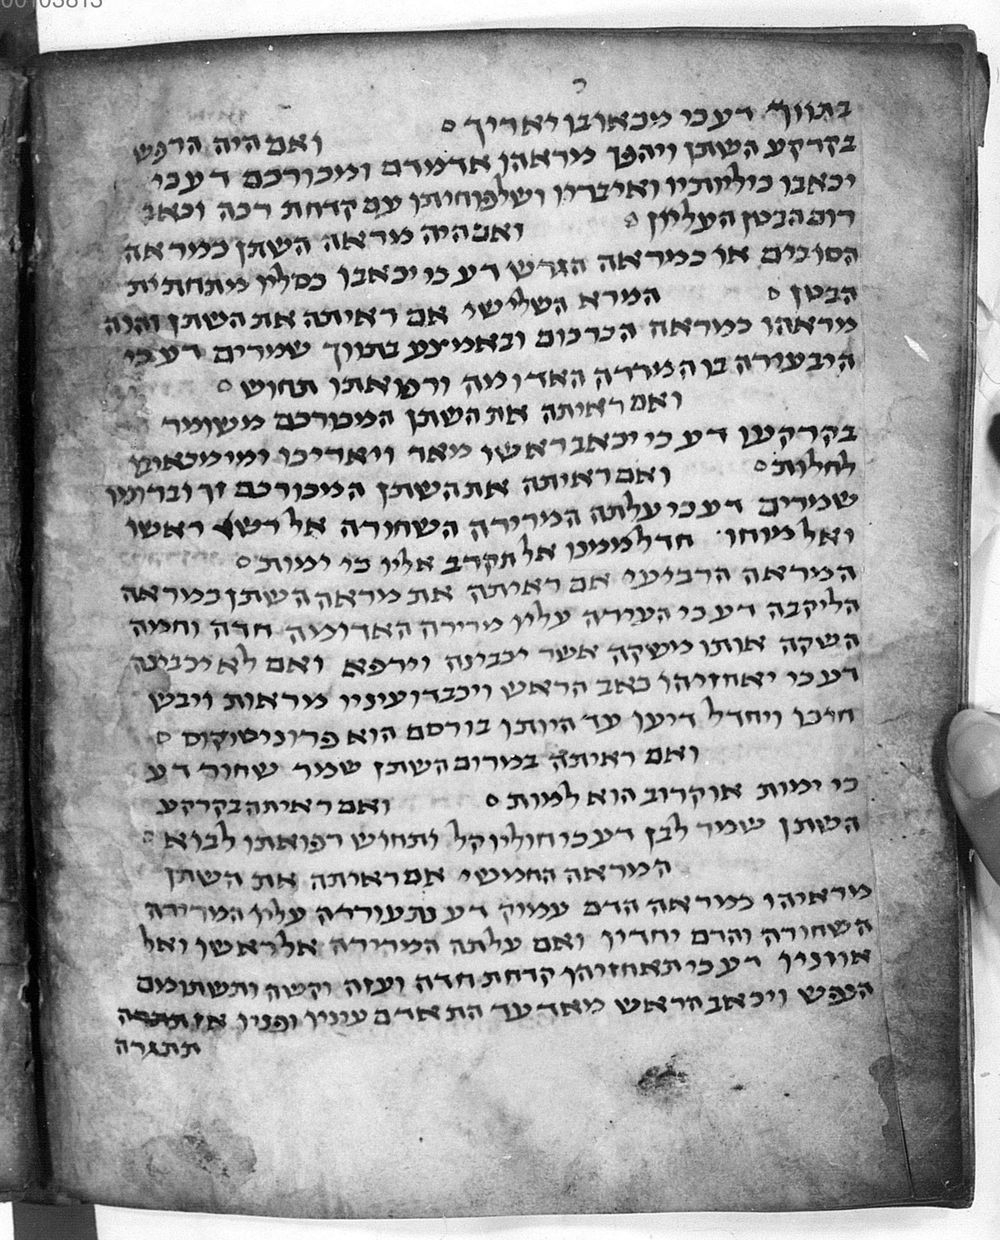 00103813
בתווך דע כי מכאובו יאריך ואם היה הרפש
בקרקע השתן ויהפך מראהו אדמדם ומכורכם דע כי
יכאבו כיליותיו ואיבריו ושלפוחיתו עם קדחת רכה וכאב
רום הבטן העליון ואם היה מראה השתן כמראה
הסובים או כמראה הגרש דע כי יכאבו כסליו מתחתית
הבטן המרא השלישי אם ראיתה את השתן והנה
מראהו כמראה הכרכום ובאמצע בתווך שמרים דע כי
היבעירה בו המררה האדומה ורפואתו תחוש
ואם ראיתה את השתן המכורכם משומר
בקרקעו דע כי יכאב ראשו מאד ויאריכו ימי מכאוביו
לחלות ואם ראיתה את השתן המכורכם זך וברומו
שמרים דע כי עלתה המרירה השחורה אל ראשו
ואל מוחו חדל ממנו אל תקרב אליו כי ימות
המראה הרביעי אם ראיתה את מראה השתן כמראה
הליקבה דע כי העירה עליו מרירה האדומה חדה וחמה
השקה אותו משקה אשר יכבינה וירפא ואם לא יכבינה
דע כי יאחזיהו כאב הראש ויכבדו עיניו מראות ויבש
חיכו ויחדל דיעו עד היותו בורסם הוא פרוניטיקוס
ואם ראיתה במרום השתן שמר שחור דע
כי ימות או קרוב הוא למות ואם ראיתה בקרקע
השתן שמר לבן דע כי חוליו קל ותחוש רפואתו לבוא
המראה החמישי אם ראיתה את השתן
מראיהו כמראה הדם עמוק דע נתעוררה עליו המרירה
השחורה והדם יחדיו ואם עלתה המרירה אל ראשו ואל
אוזניו דע כי תאחזיהו קדחת חדה ועזה וקשה ותשתומם
הנפש ויכאב הראש מאד עד התאדם עיניו ופניו אז
תתגרה